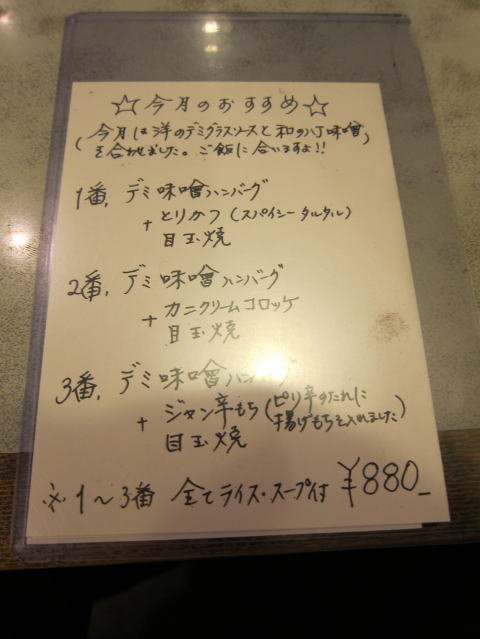 ☆今月のおすすめ☆
(今月は洋のデミグラスソースと和の八丁味噌)
を合わせました。ご飯に合いますよ!!
1番. デミ味噌ハンバーグ
+ とりかつ(スパイシータルタル)
目玉焼
2番. デミ味噌ハンバーグ
+ カニクリームコロッケ
目玉焼
3番. デミ味噌ハンバーグ
+ ジャン辛もち(ピリ辛のたれに
揚げもちを入れました)
目玉焼
※1~3番 全てライス・スープ付 ¥880_